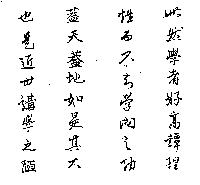 此然學者好高譚捏
性而不去学问之功
蓋天蓋地如是其大
也是近世講學之陋